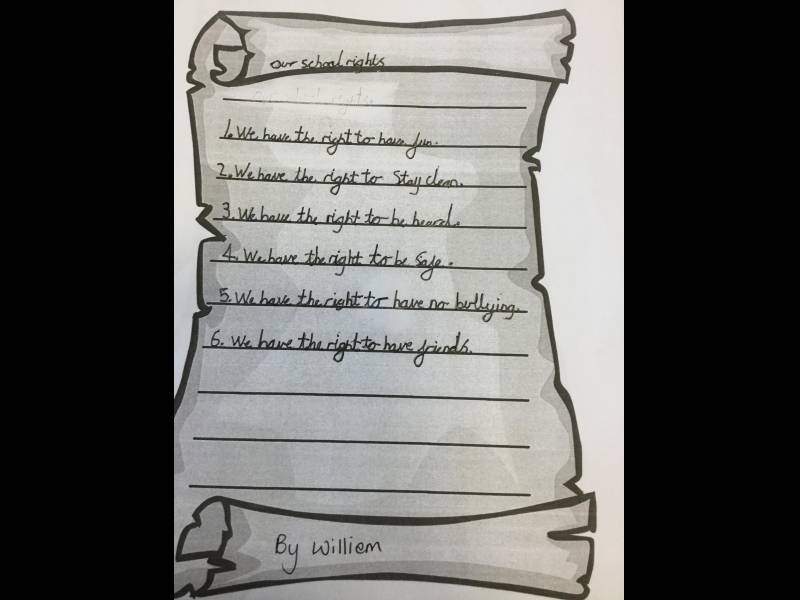 our school rights
1. We have the right to have fun.
2. We have the right to stay clean.
3. We have the right to be heard.
4. We have the right to be safe.
5. We have the right to have no bullying.
6. We have the right to have friends.
By Williem